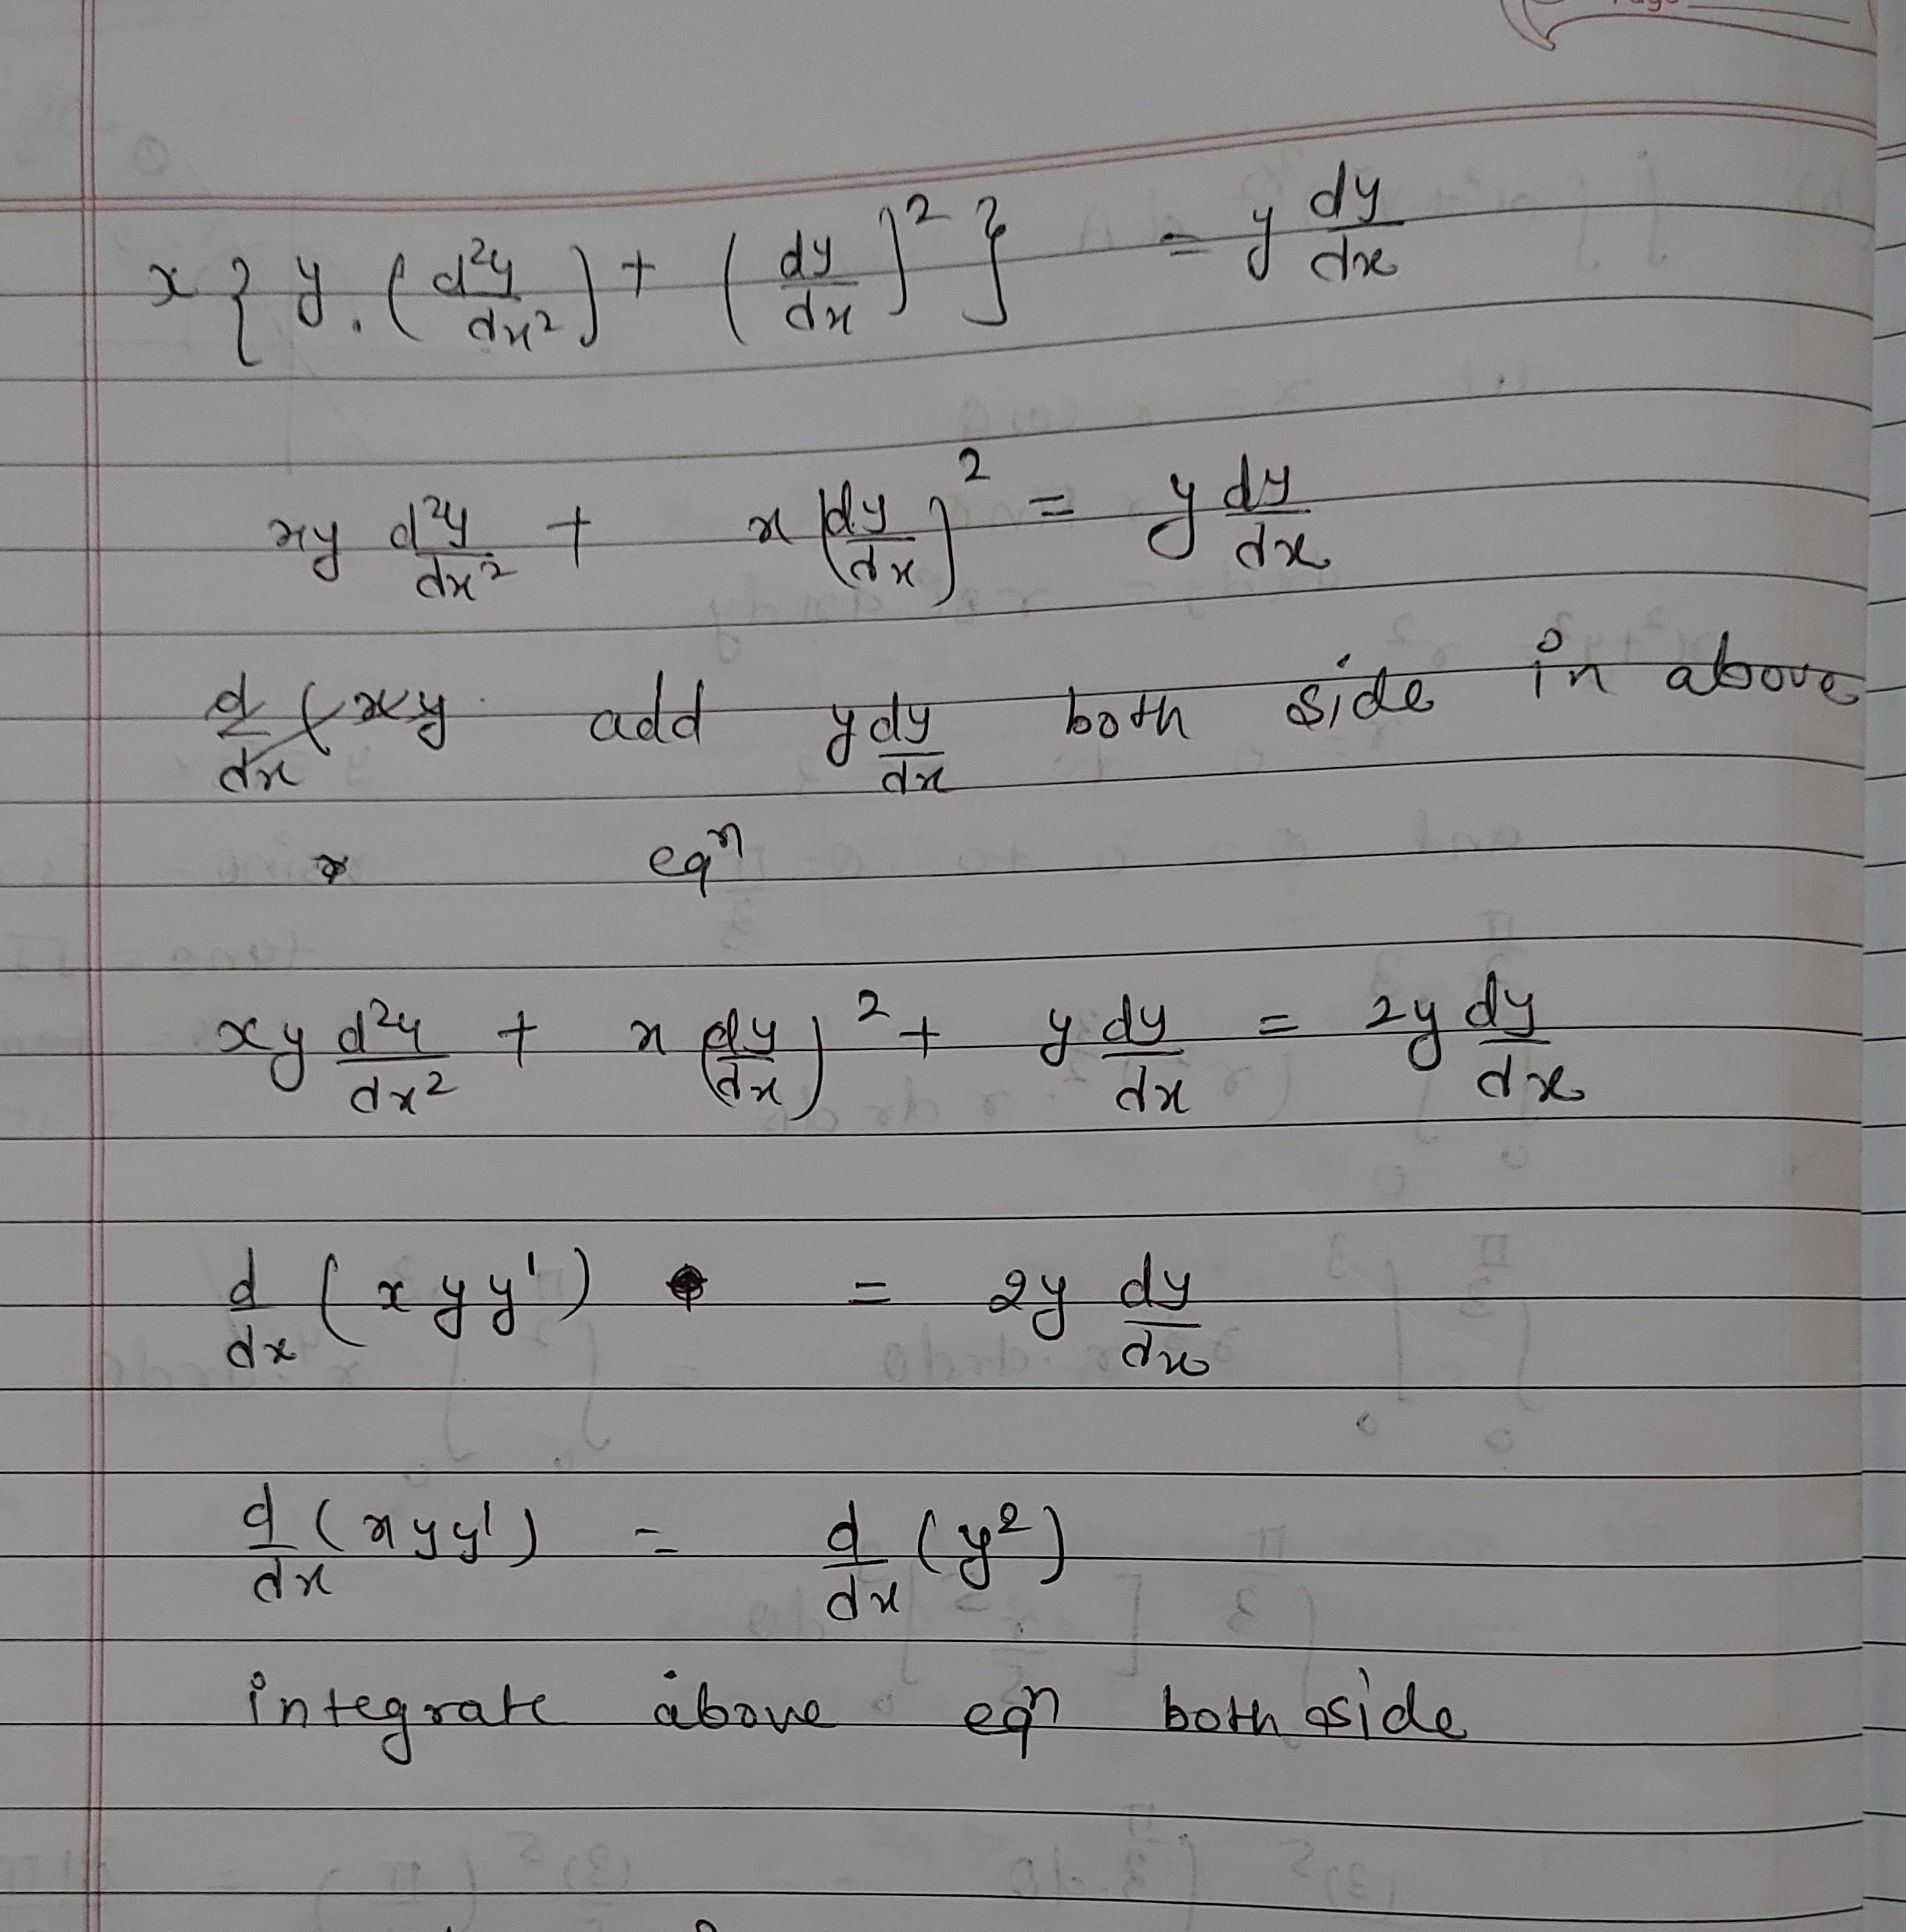 Page
x { y. (d²y/dx²) + (dy/dx)² } = y dy/dx
xy d²y/dx² + x (dy/dx)² = y dy/dx
d/dx (xy add y dy/dx both side in above
eqⁿ
xy d²y/dx² + x (dy/dx)² + y dy/dx = 2y dy/dx
d/dx (x y y') = 2y dy/dx
d/dx (x y y') = d/dx (y²)
integrate above eqⁿ both side